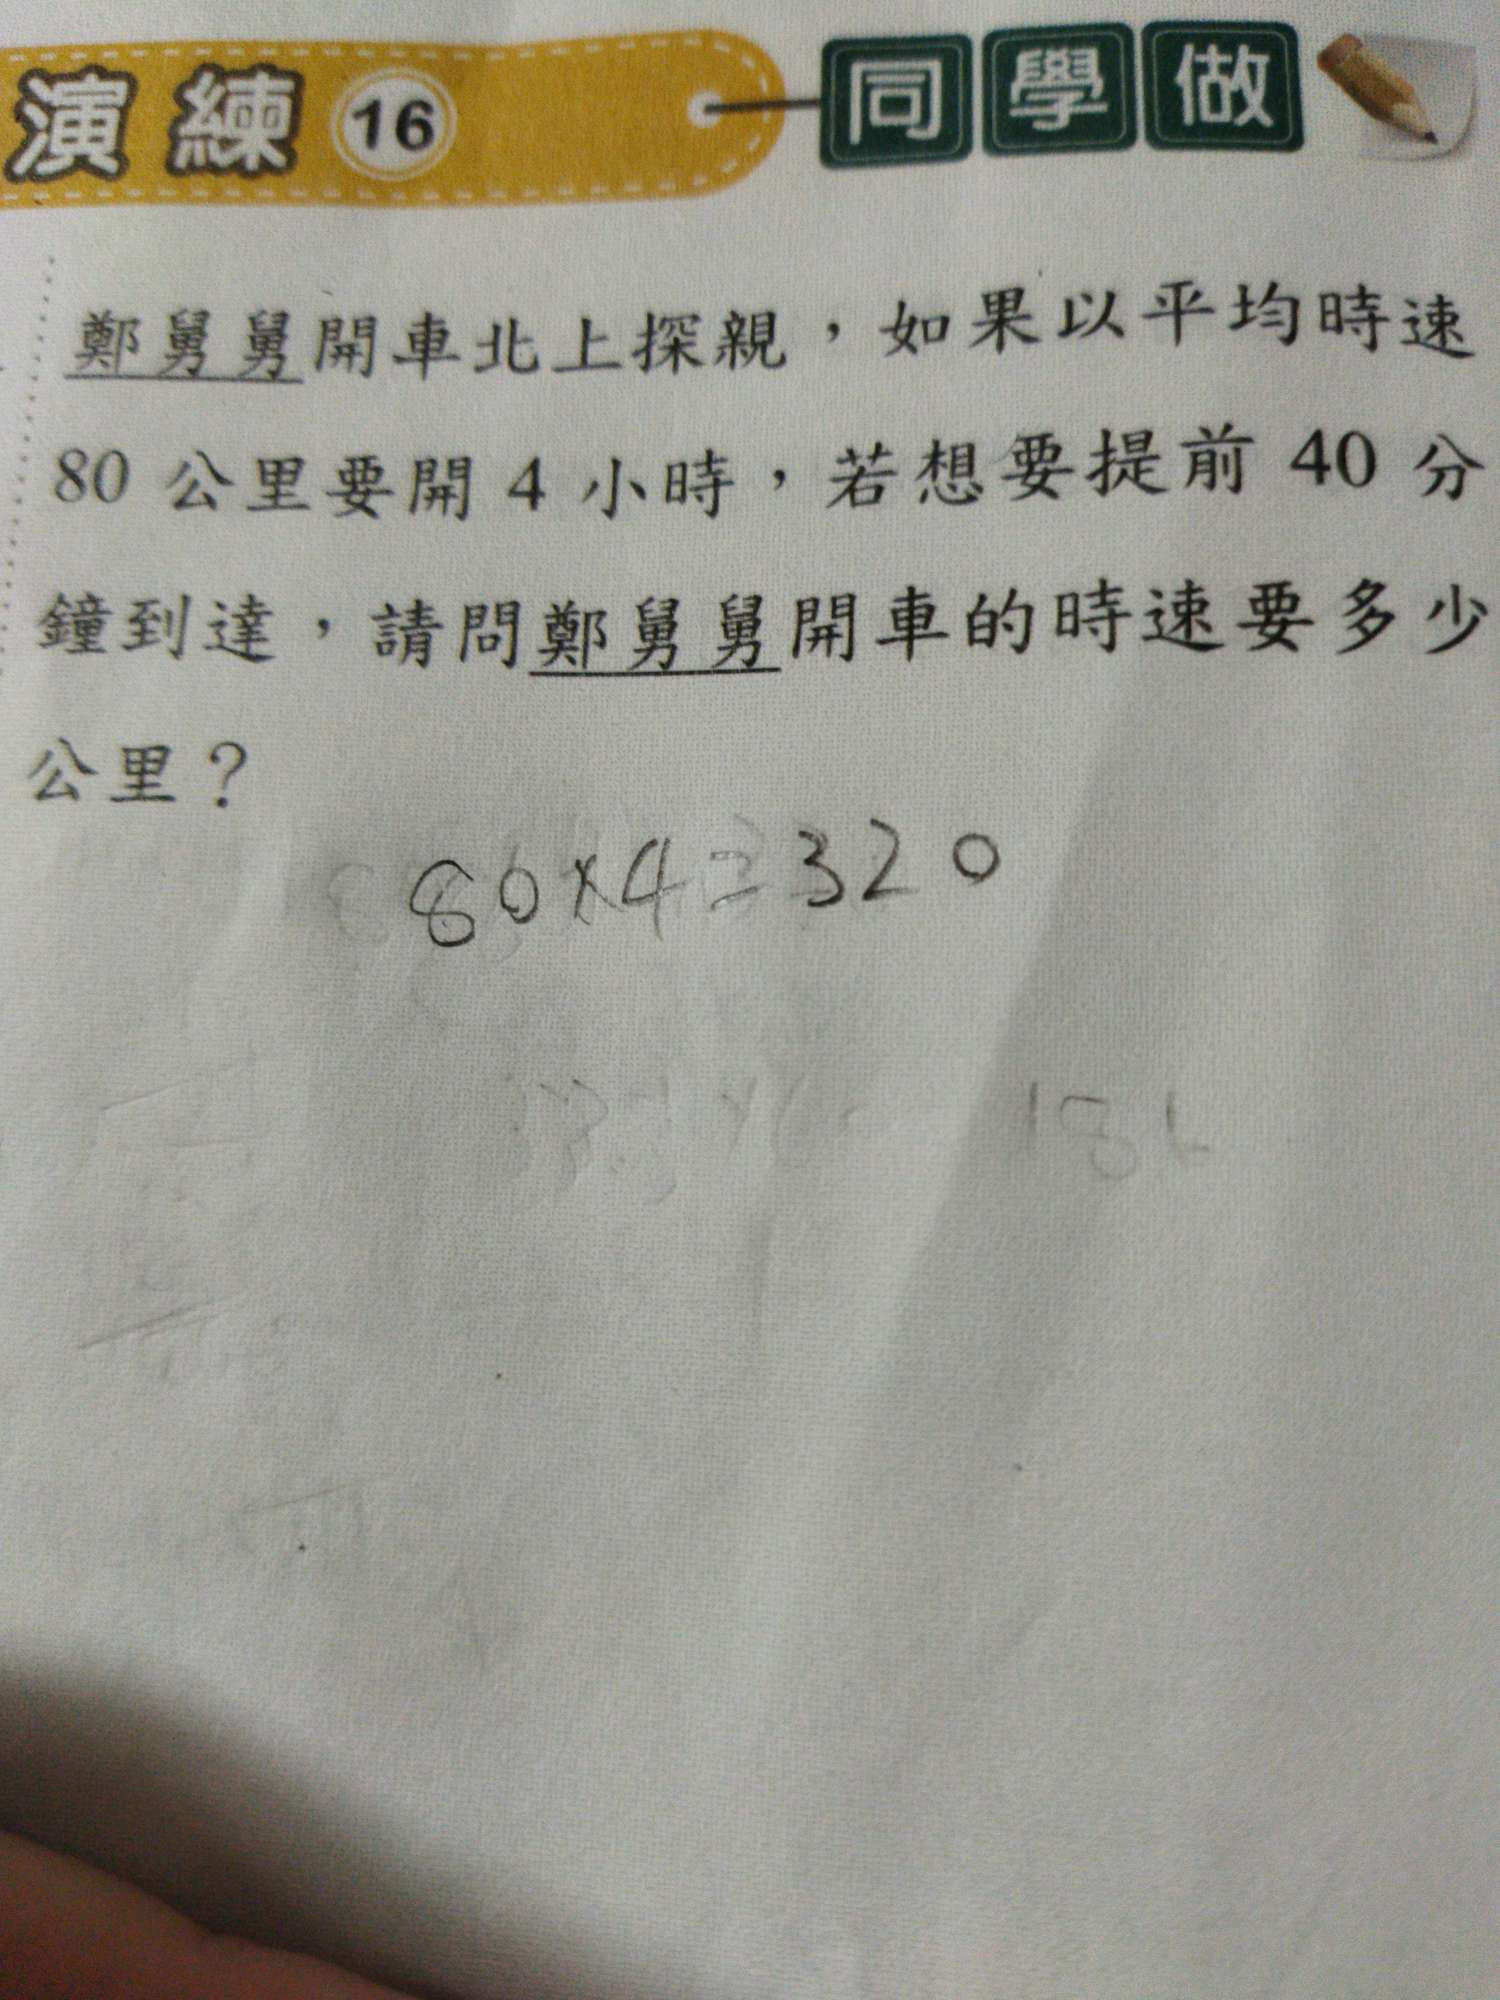 演練 16 同學做
鄭舅舅開車北上探親，如果以平均時速
80 公里要開 4 小時，若想要提前 40 分
鐘到達，請問鄭舅舅開車的時速要多少
公里？
80×4=320